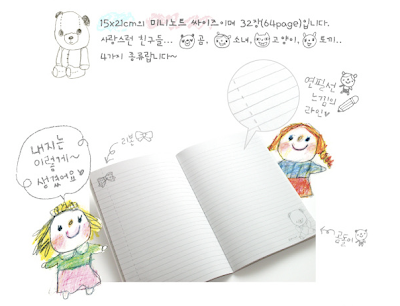 15x21cm의 미니노트 싸이즈이며 32장(64page)입니다.
사랑스런 친구들... 곰, 소녀, 고양이, 토끼..
4가지 종류랍니다~
연필선
느낌의
라인♥
리본
내지는
이렇게~
생겼어요♥
곰돌이